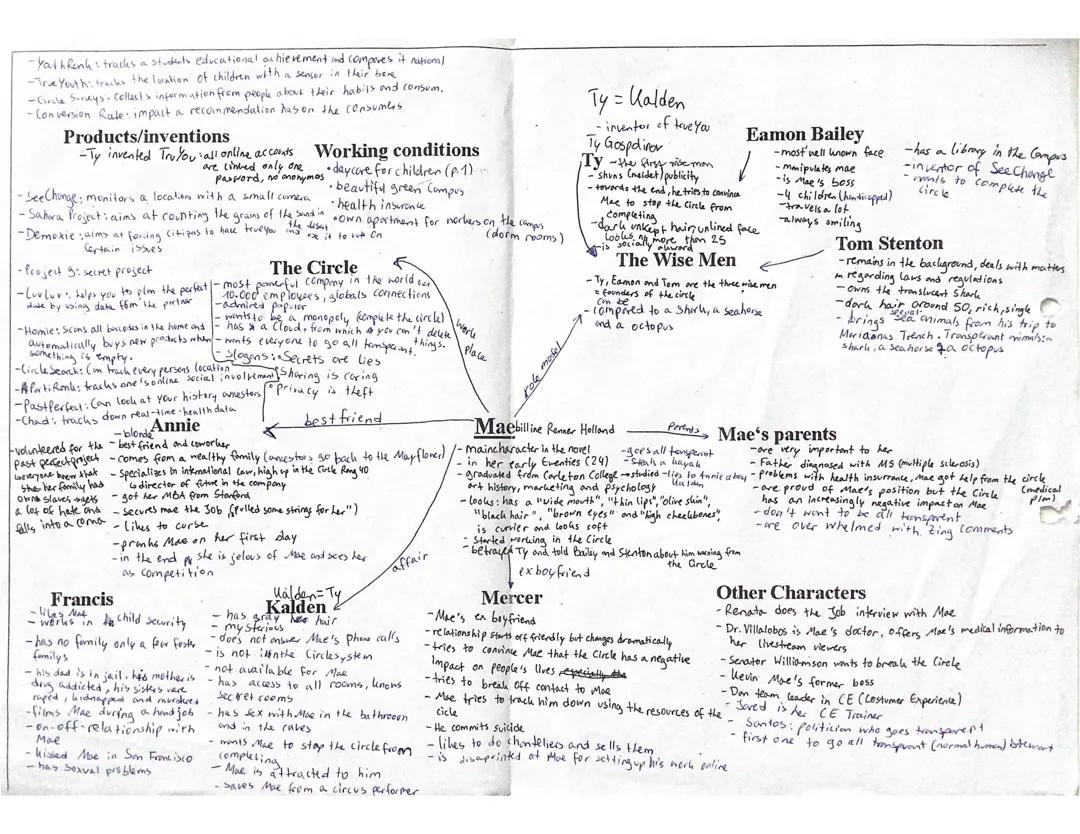 - YouthRank: tracks a students educational achievement and compares it national
- TrueYouth: tracks the location of children with a sensor in their bone
- Circle Surveys: collects information from people about their habits and consum.
- Conversion Rate: impact a recommendation has on the consumers
Products/inventions
- Ty invented TruYou: all online accounts
are linked only one
password, no anonymos
- SeeChange: monitors a location with a small camera
- Sahara Project: aims at counting the grains of the sand in
the desat
- Demoxie: aims at forcing citizens to have trueyou and use it to vot on
certain issues
- Project 9: secret project
- LuvLuv: helps you to plan the perfect
date by using data from the partner
- Homie: scans all barcodes in the home and
automatically buys new products when
something is empty.
- CircleSearch: can track every persons location
- PartiRank: tracks one's online social involvement
- PastPerfect: Can look at your history ancestors
- Chad: tracks down real-time-health data
Working conditions
• daycare for children (p.1)
• beautiful green campus
• health insurance
• own apartment for workers on the campus
(dorm rooms)
The Circle
- most powerful company in the world over
10.000 employees, globals connections
- admired popular
- wants to be a monopoly (complete the circle)
- has a Cloud, from which you can't delete
things.
- wants everyone to go all transparent.
- slogans: • Secrets are lies
• sharing is caring
• privacy is theft
work place
Ty = Kalden
- inventor of trueYou
Ty Gospdinov
Ty
- the first wise man
- shuns (meidet) publicity
- towards the end, he tries to convince
Mae to stop the Circle from
completing
- dark unkept hair, unlined face
looks no more than 25
- is socially akward
Eamon Bailey
- most well known face
- manipulates mae
- is Mae's boss
- 4 children (handicapped)
- travels a lot
- always smiling
- has a library in the Campus
- inventor of SeeChange
- wants to complete the
circle
Tom Stenton
- remains in the background, deals with matters
regarding laws and regulations
- owns the translucent shark
- dark hair around 50, rich, single
- brings special sea animals from his trip to
Meridanas Trench. Transperant animals: a
shark, a seahorse & a octopus
The Wise Men
- Ty, Eamon and Tom are the three wise men
= founders of the circle
can be
- compared to a shark, a seahorse
and a octopus
role model
best friend
Annie
- blonde
- best friend and coworker
- comes from a wealthy family (ancestors go back to the Mayflower)
- specializes in international law, high up in the Circle Rang 40
↳ director of future in the company
- got her MBA from Stanford
- secures mae the Job (pulled some strings for her")
- likes to curse
- pranks Mae on her first day
- in the end she is jelous of Mae and sees her
as competition
- volunteered for the
past perfect project
everyone knows that
her family has
owns slaves → gets
a lot of hate and
falls into a coma
Mae billine Renner Holland
- maincharacter in the novel
- in her early twenties (24)
- graduated from Carleton College → studied
art history, marketing and psychology
- looks: has a "wide mouth", "thin lips", "olive skin",
"black hair", "brown eyes" and "high cheekbones",
is curvier and looks soft
- started working in the Circle
- betrayed Ty and told Bailey and Stenton about him warning from
the Circle
- goes all transparent
- steals a kayak
- lies to Annie about
Kalden
Parents
Mae's parents
- are very important to her
- Father diagnosed with MS (multiple sclerosis)
- problems with health insurrance, Mae got help from the circle
(medical plan)
- are proud of Mae's position but the Circle
has an increasingly negative impact on Mae
- don't want to be all transparent
- are over whelmed with Zing comments
affair
ex boyfriend
Francis
- likes Mae
- works in child security
- has no family only a few foster
familys
- his dad is in jail, his mother is
drug addicted, his sisters were
raped, kidnapped and murdered
- films Mae during a handjob
- on-off-relationship with
Mae
- kissed Mae in San Francisco
- has sexual problems
Kalden = Ty
Kalden
- has gray hair
- mysterious
- does not answer Mae's phone calls
- is not in the Circlesystem
- not available for Mae
- has access to all rooms, knows
secret rooms
- has sex with Mae in the bathroom
and in the caves
- wants Mae to stop the circle from
completing
- Mae is attracted to him
- saves Mae from a circus performer
Mercer
- Mae's ex boyfriend
- relationship starts off friendly but changes dramatically
- tries to convince Mae that the Circle has a negative
impact on people's lives especially the
- tries to break off contact to Mae
- Mae tries to track him down using the resources of the
cicle
- He commits suicide
- likes to do chandeliers and sells them
- is disaprinted at Mae for setting up his work online
Other Characters
- Renata does the Job interview with Mae
- Dr. Villalobos is Mae's doctor, offers Mae's medical information to
her livestream viewers
- Senator Williamson wants to break the Circle
- Kevin Mae's former boss
- Dan team leader in CE (Costumer Experience)
- Jared is her CE Trainer
- Santos: politician who goes transparent
- first one to go all transparent (normal human) Stewart